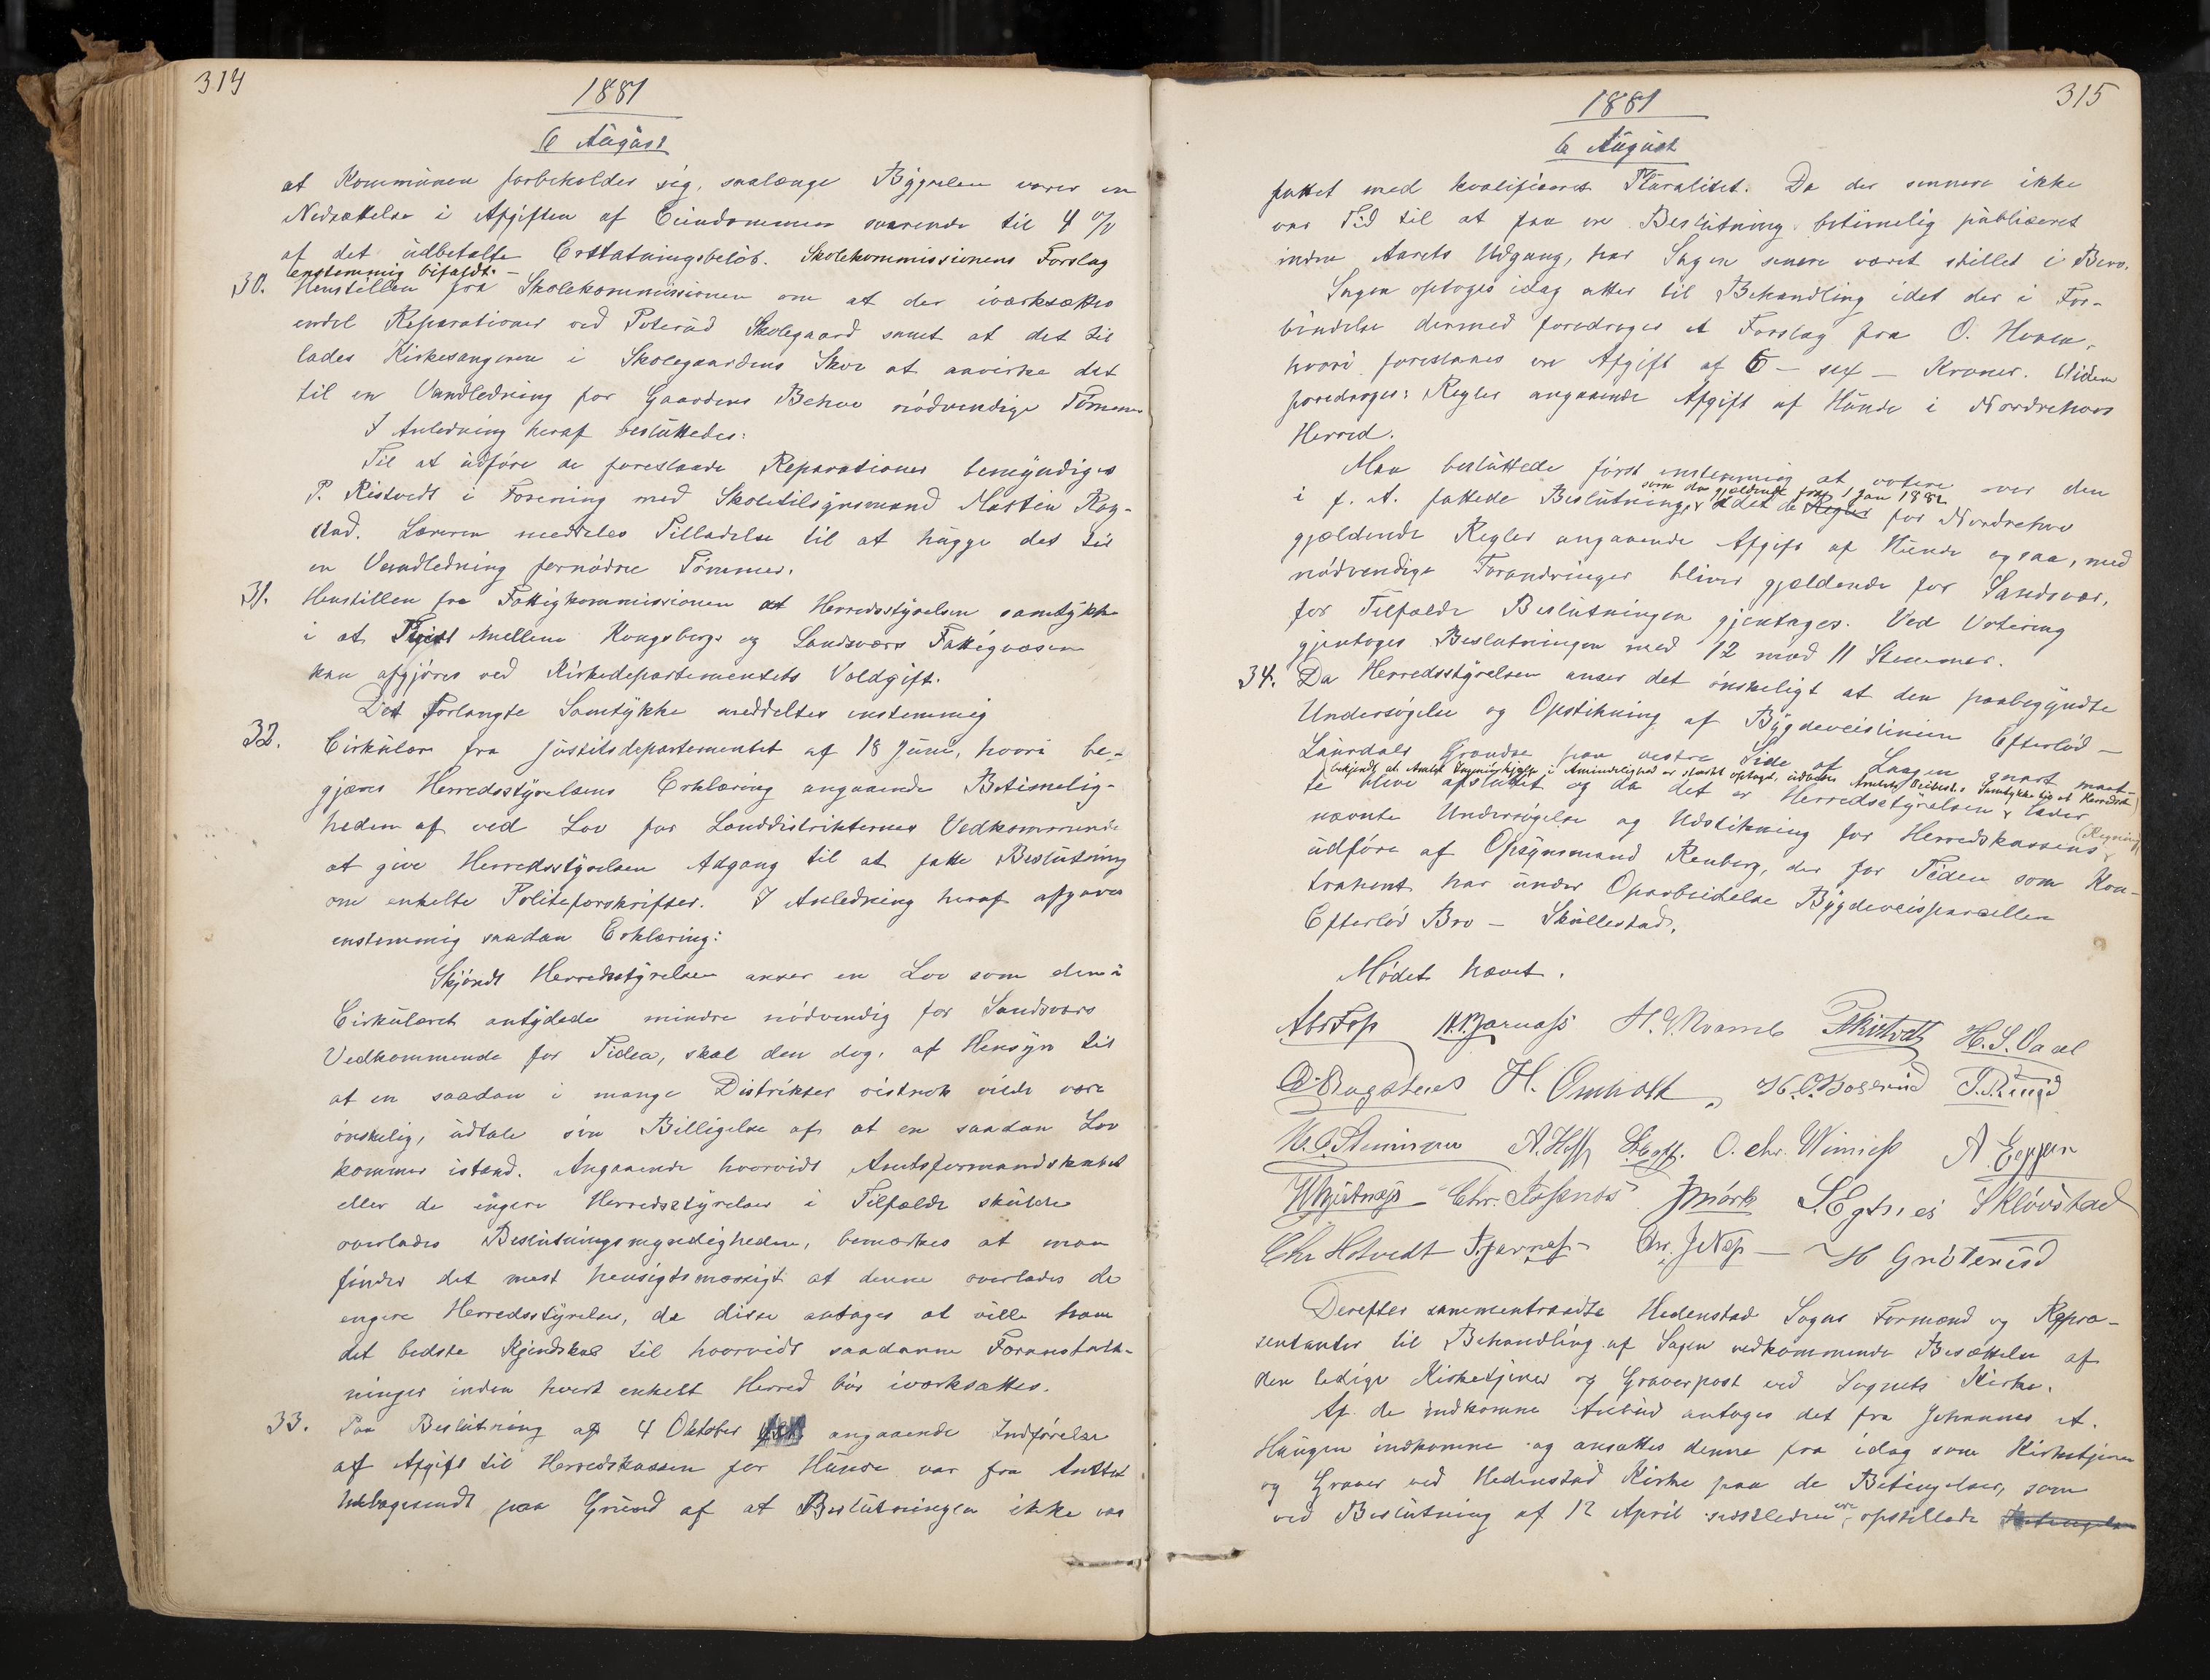 314
1881
6 August
at Kommunen forbeholder sig, saalænge Bygselen varer en
Nedsættelse i Afgiften af Eiendommen svarende til 4 %
af det udbetalte Erstatningsbeløb. Skolekommissionens Forslag
enstemmig bifaldt. —
30. Henstillen fra Skolekommissionen om at der iværksættes
endel Reparationer ved Poterud Skolegaard samt at det til
lades Kirkesangeren i Skolegaardens Skov at avirke det
til en Vandledning for Gaardens Behov nødvendige Tømmer
I Anledning heraf besluttedes:
Til at udføre de foreslaaede Reparationer bemyndiges
P. Ristvedt i Forening med Skoletilsynsmand Martin Rag-
stad. Læreren meddeles Tilladelse til at hugge det til
en Vandledning fornødne Tømmer.
31. Henstillen fra Fattigkommissionen at Herredsstyrelsen samtykke
i at Tvist mellem Kongsbergs og Sandsværs Fattigvæsen
kan afgjøres ved Kirkedepartementets Voldgift.
Det forlangte Samtykke meddeltes enstemmig
32. Cirkulær fra Justitsdepartementet af 18 Juni, hvori be-
gjæres Herredsstyrelsens Erklæring angaaende Betimelig-
heden af ved Lov for Landdistrikternes Vedkommende
at give Herredsstyrelsen Adgang til at fatte Beslutning
om enkelte Politiforskrifter. I Anledning heraf afgaves
enstemmig saadan Erklæring:
Skjøndt Herredsstyrelsen anser en Lov som den i
Cirkulæret antydede mindre nødvendig for Sandsværs
Vedkommende for Tiden, skal den dog, af Hensyn til
at en saadan i mange Distrikter vistnok vilde være
ønskelig, udtale sin Billigelse af at en saadan Lov
kommer istand. Angaaende hvorvidt Amtsformandskabet
eller de engere Herredsstyrelser i Tilfælde skulde
overlades Beslutningsmyndigheden, bemærkes at man
finder det mest hensigtsmæssigt at denne overlades de
engere Herredsstyrelser, da disse antages at ville have
det bedste Kjendskab til hvorvidt saadanne Foranstalt-
ninger inden hvert enkelt Herred bør iværksættes.
33. Paa Beslutning af 4 Oktober angaaende Indførelse
af Afgift til Herredskassen for Hunde var fra Amtet
tilbagesendt paa Grund af at Beslutningen ikke var
315
1881
6 August
fattet med kvalificeret Pluralitet. Da der sennere ikke
var Tid til at faa en Beslutning betimelig publiceret
inden Aarets Udgang, har Sagen senere været stillet i Bero.
Sagen optoges idag atter til Behandling idet der i For-
bindelse dermed foredroges et Forslag fra O. Hvaen,
hvori foreslaaes en Afgift af 6 — sex — Kroner. Videre
foredroges: Regler angaaende Afgift af Hunde i Norderhovs
Herred.
Man besluttede først enstemmig at votere over den
i f. A. fattede Beslutning, idet de for Norderhov
som da gjældende fra 1 Jan 1882
gjældende Regler angaaende Afgift af Hunde ogsaa, med
nødvendige Forandringer bliver gjældende for Sandsvær,
for Tilfælde Beslutningen gjentages. Ved Votering
gjentoges Beslutningen med 12 mod 11 Stemmer.
34. Da Herredsstyrelsen anser det ønskeligt at den paabegyndte
Undersøgelse og Opstikning af Bygdeveislinien Efteløt —
Laurdals Grændse paa vestre Side af Laagen snart maat-
te blive afsluttet og da det er Herredsstyrelsen lader
bekjendt at Amtets Ingeniørhjælp i Almindelighed er stærkt optaget,
nævnte Undersøgelse og Udstikning for Herredskassens
(Regning)
udføre af Opsynsmand Renberg, der for Tiden som Kon-
trahent har under Oparbeidelse Bygdeveisparcellen
Efteløt Bro — Skullestad.
Mødet hævet.
Abr Foss H. Bjarnaas H. Kvamb P Ristvedt H. S. Vaal
O Ragstenes H. Omholt H. O. Bogerud
A. Hoff O. Chr. Wiiness A Eggen
Chr. Fossnæs J Mørk S Kløvstad
Chr Hotvedt Chr. J Næss H Grøterud
Derefter sammentraadte Hedenstad Sogns Formænd og Repræ-
sentanter til Behandling af Sagen vedkommende Besættelse af
den ledige Kirketjener og Graverpost ved Sognets Kirke.
Af de indkomne Anbud antoges det fra Johannes A.
Haugen indkomne og ansættes denne fra idag som Kirketjener
og Graver ved Hedenstad Kirke paa de Betingelser, som
ved Beslutning af 12 April sidstleden ere opstillede Betingelser